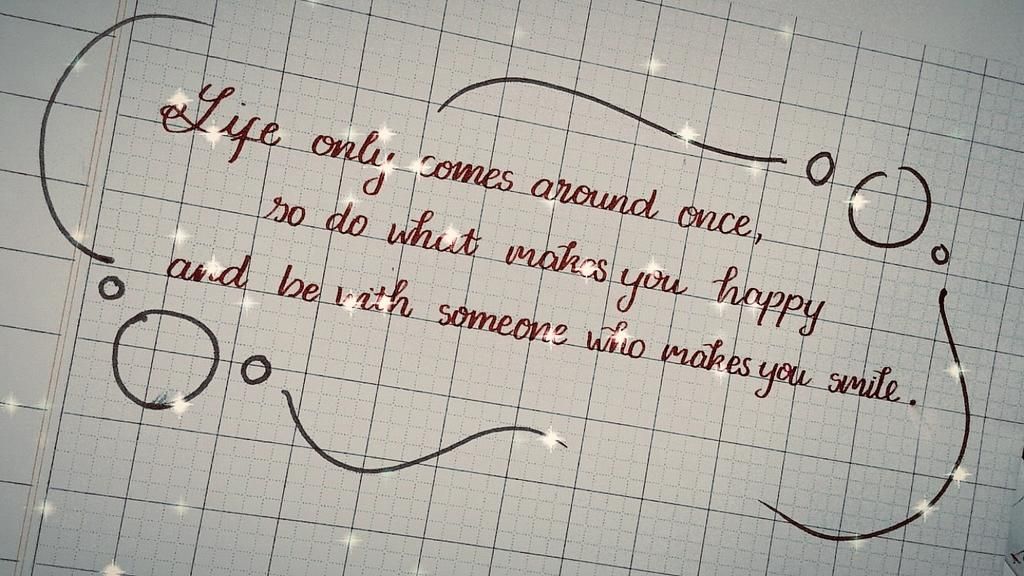 Life only comes around once,
so do what makes you happy
and be with someone who makes you smile.